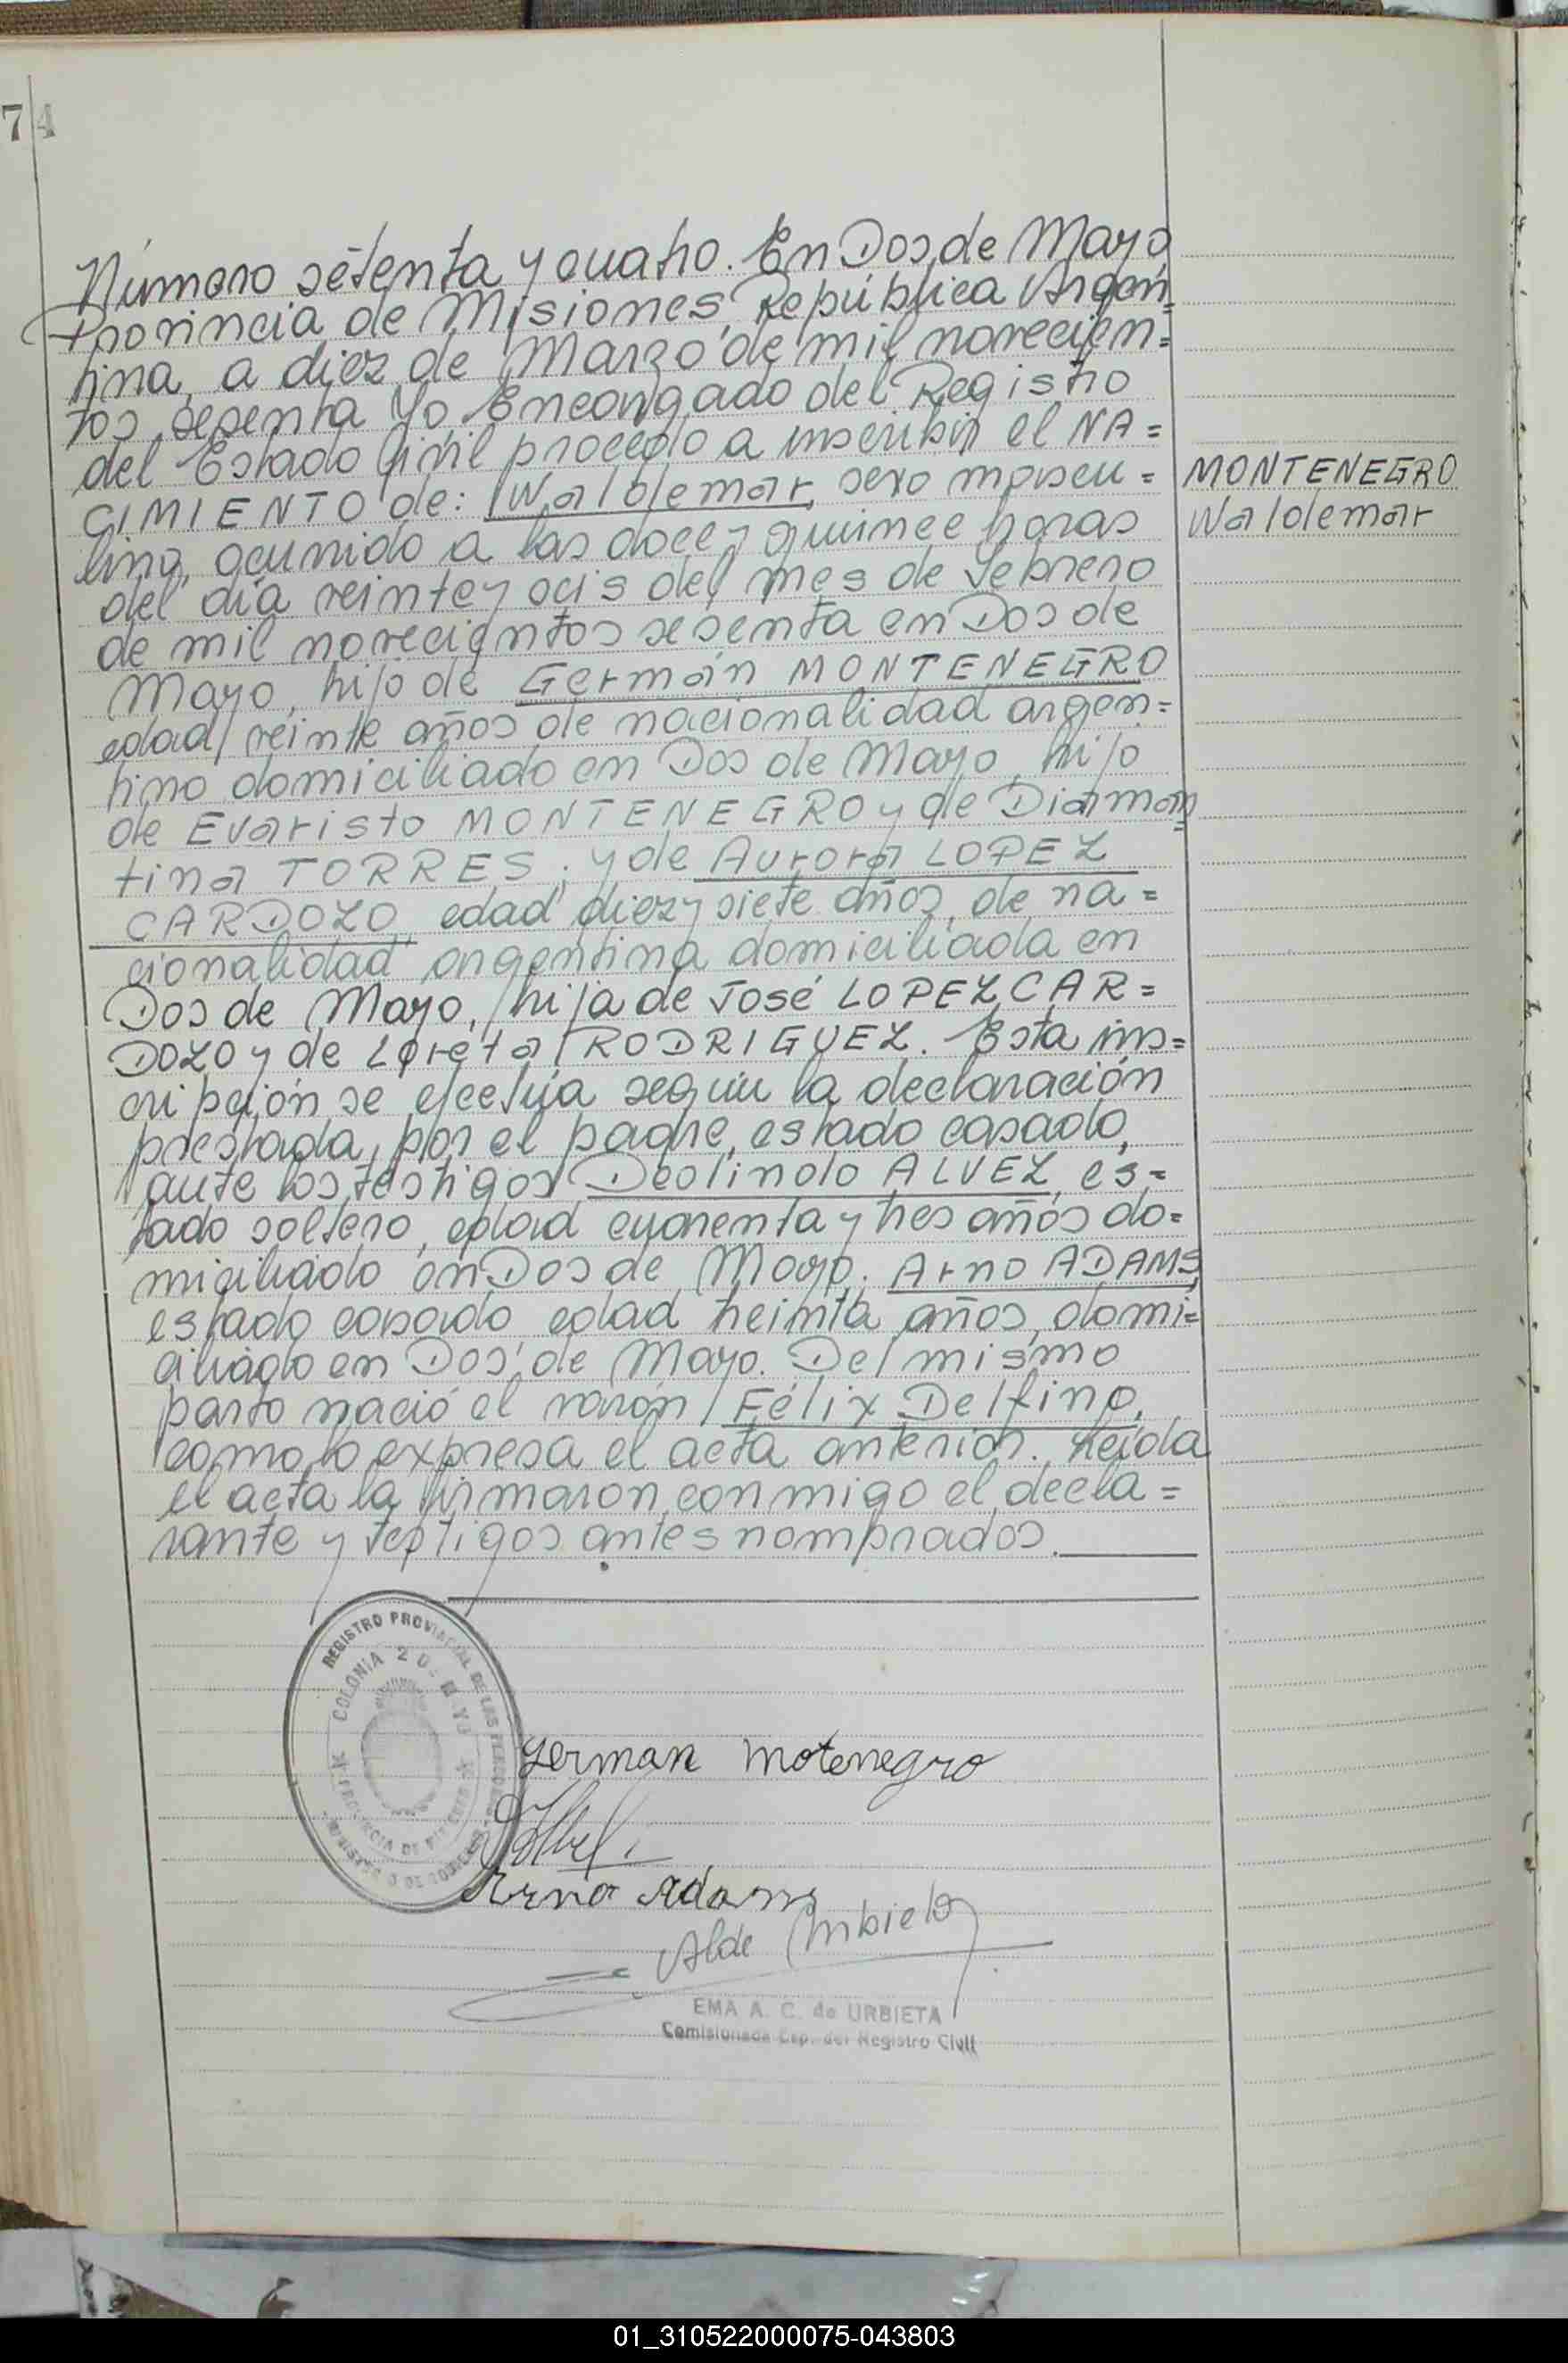 74
Número setenta y cuatro. En Dos de Mayo
Provincia de Misiones, República Argen=
tina, a diez de Marzo de mil novecien=
tos sesenta Yo Encargado del Registro
del Estado Civil procedo a inscribir el NA=
CIMIENTO de: Waldemar, sexo mascu=
lino, ocurrido a las doce y quince horas
del día veinte y seis del mes de Febrero
de mil novecientos sesenta en Dos de
Mayo, hijo de Germán MONTENEGRO
edad veinte años de nacionalidad argen=
tino domiciliado en Dos de Mayo, hijo
de Evaristo MONTENEGRO y de Diaman=
tina TORRES; y de Aurora LOPEZ
CARDOZO, edad diez y siete años, de na=
cionalidad argentina domiciliada en
Dos de Mayo, hija de José LOPEZ CAR=
DOZO y de Loreta RODRIGUEZ. Esta ins=
cripción se efectúa según la declaración
prestada por el padre, estado casado,
ante los testigos Deolindo ALVEZ, es=
tado soltero, edad cuarenta y tres años do=
miciliado en Dos de Mayo. Arno ADAMS,
estado casado edad treinta años, domi=
ciliado en Dos de Mayo. Del mismo
parto nació el varón Félix Delfino,
como lo expresa el acta anterior. Leída
el acta la firmaron conmigo el decla=
rante y testigos antes nombrados.
MONTENEGRO
Waldemar
REGISTRO PROVINCIAL DE LAS PERSONAS
COLONIA 2 DE MAYO
PROVINCIA DE MISIONES
MINISTERIO DE GOBIERNO
German Motenegro
Arno Adams
EMA A. C. de URBIETA
Comisionada Esp. del Registro Civil
01_310522000075-043803